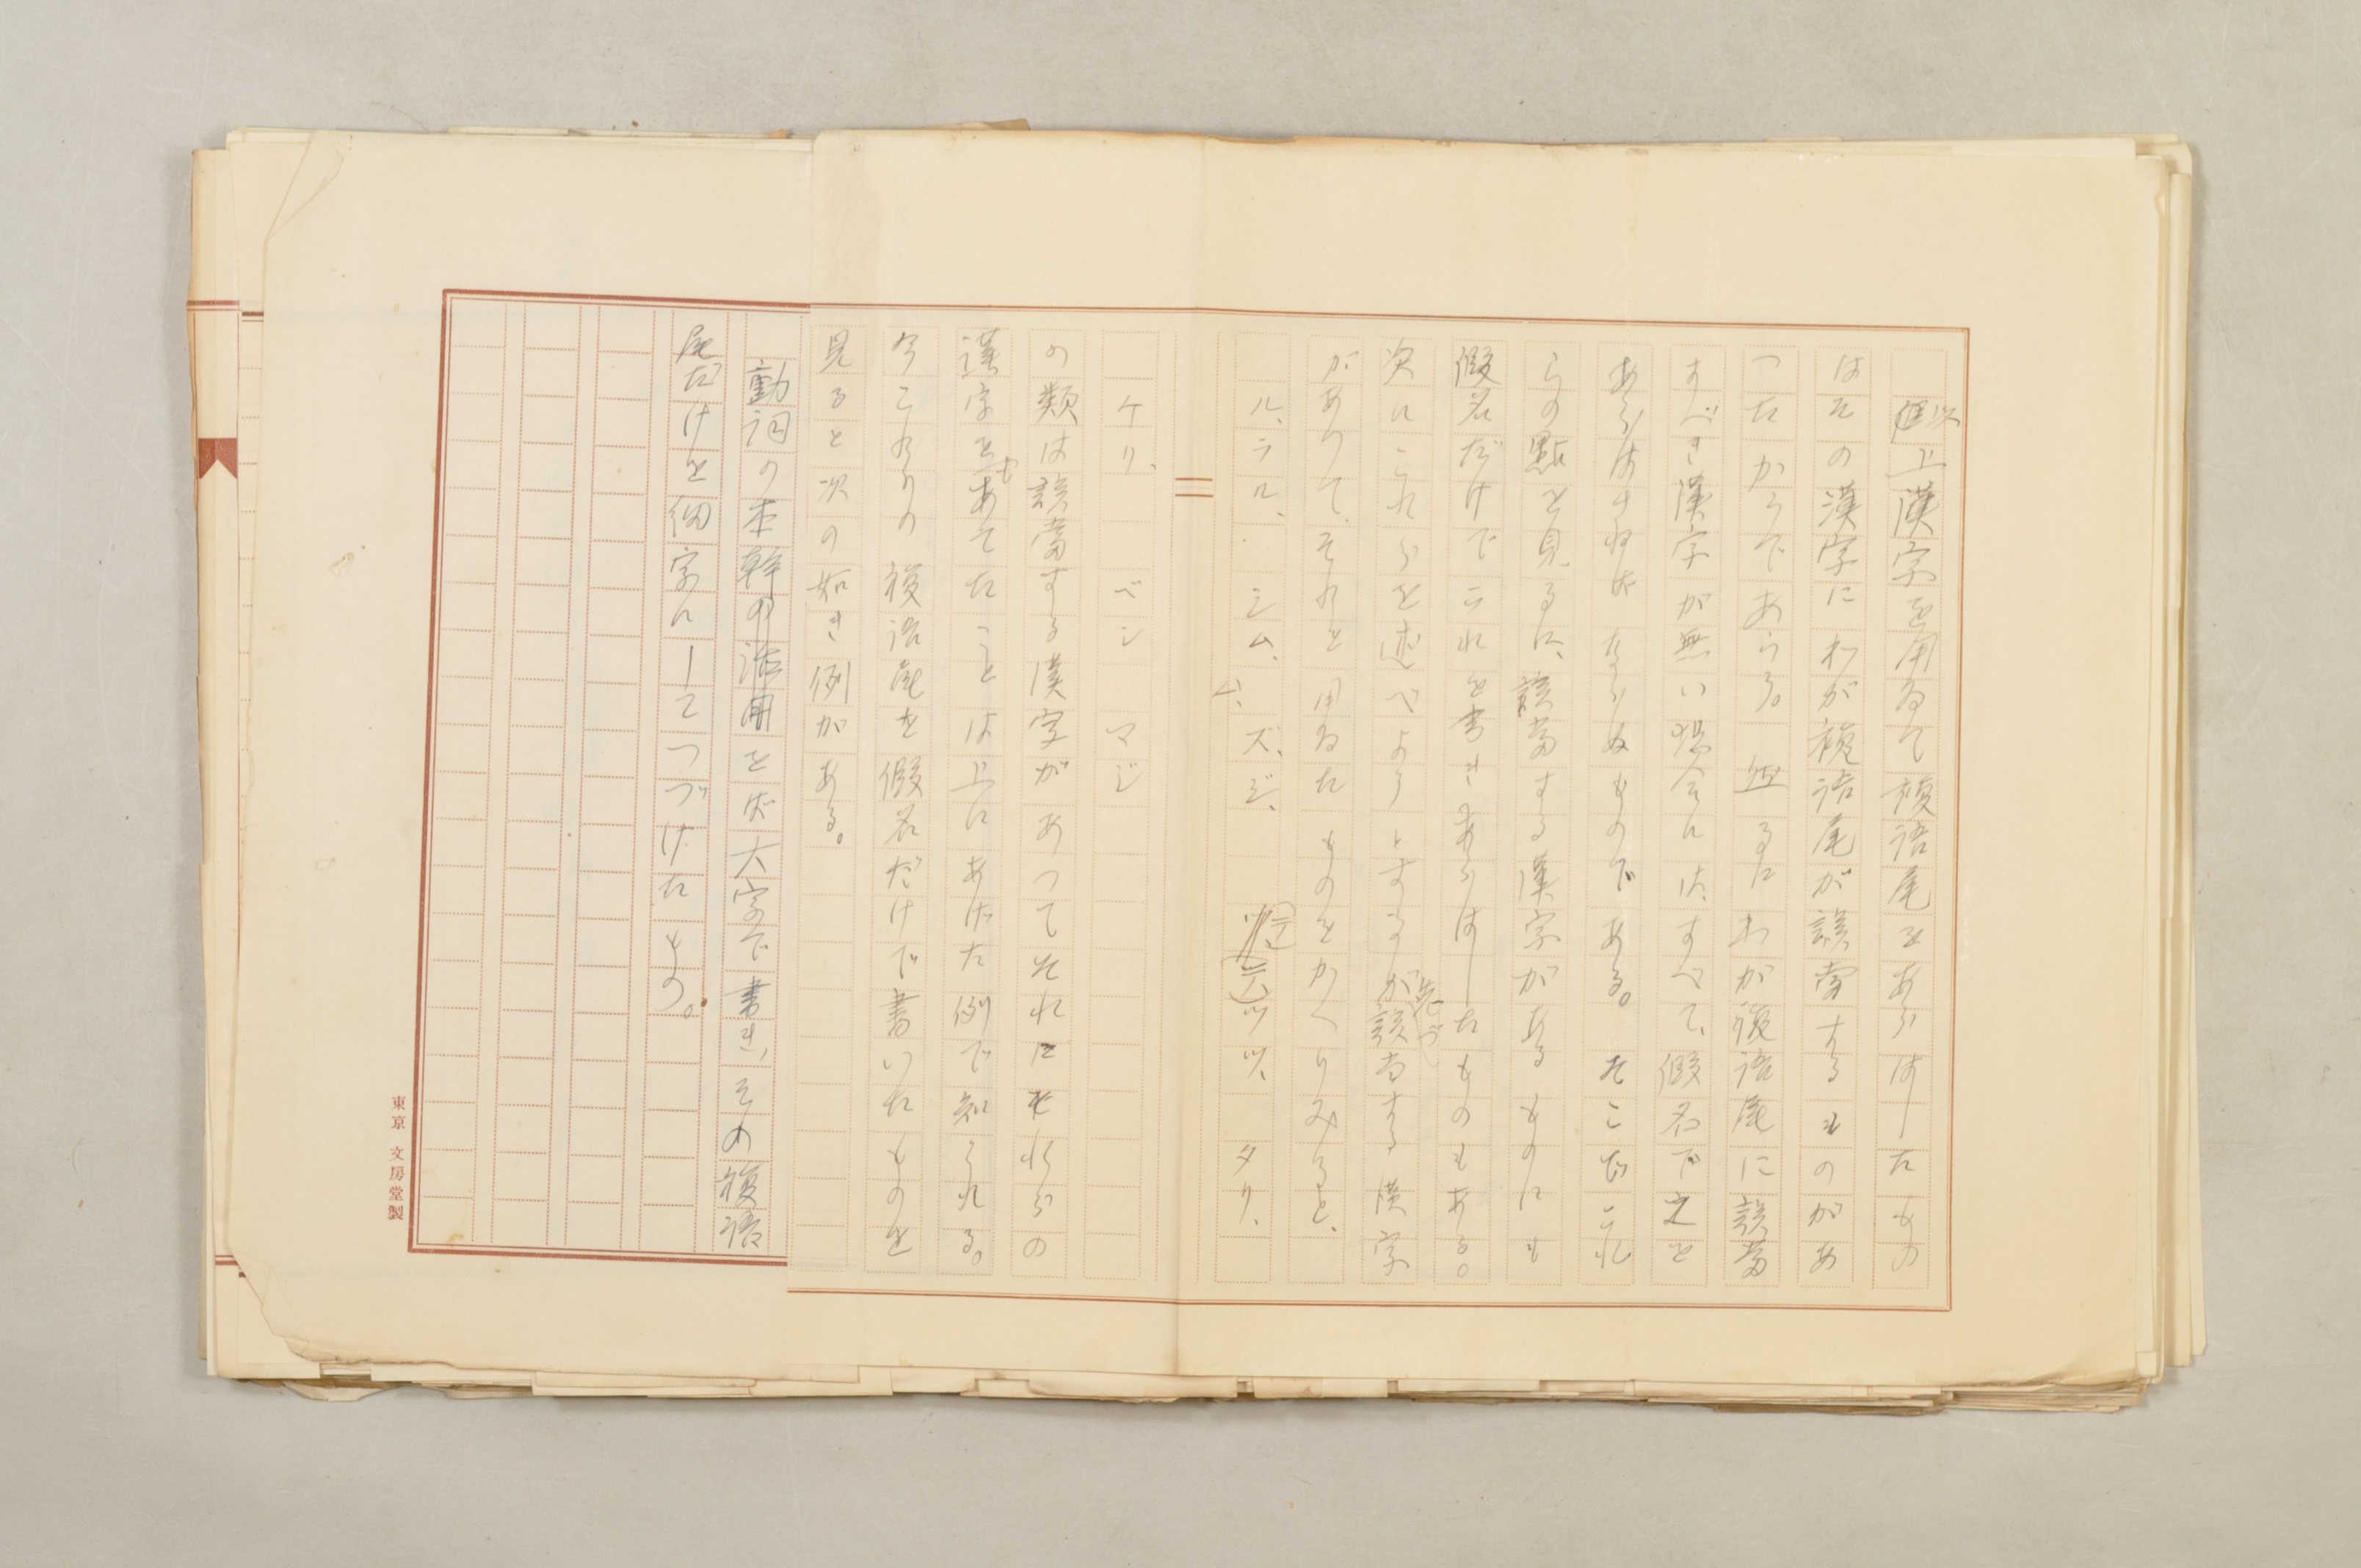 以上漢字を用ゐて複語尾をあらはしたもの
はその漢字にわが複語尾が該当するものがあ
つたからであらう。然るにわが複語尾に該当
すべき漢字が無い場合には、すべて、假名で之を
あらはさねばならぬものである。そこでこれ
らの點を見るに、該当する漢字があるものにも
假名だけでこれを書きあらはしたものもある。
次にこれらを述べようとするが先づ、該当する漢字
がありて、それを用ゐたものをかへりみると、
ル、ラル、シム、ム、ズ、ジ、ツ、タリ、
ケリ、ベシ マジ
の類は該當する漢字があつてそれにそれらの
漢字をもあてたことは上にあげた例で知られる。
今これらの複語尾を假名だけで書いたものを
見ると次の如き例がある。
動詞の本幹の活用をば大字で書き、その複語
尾だけを細字にしてつづけたもの。
東京 文房堂製